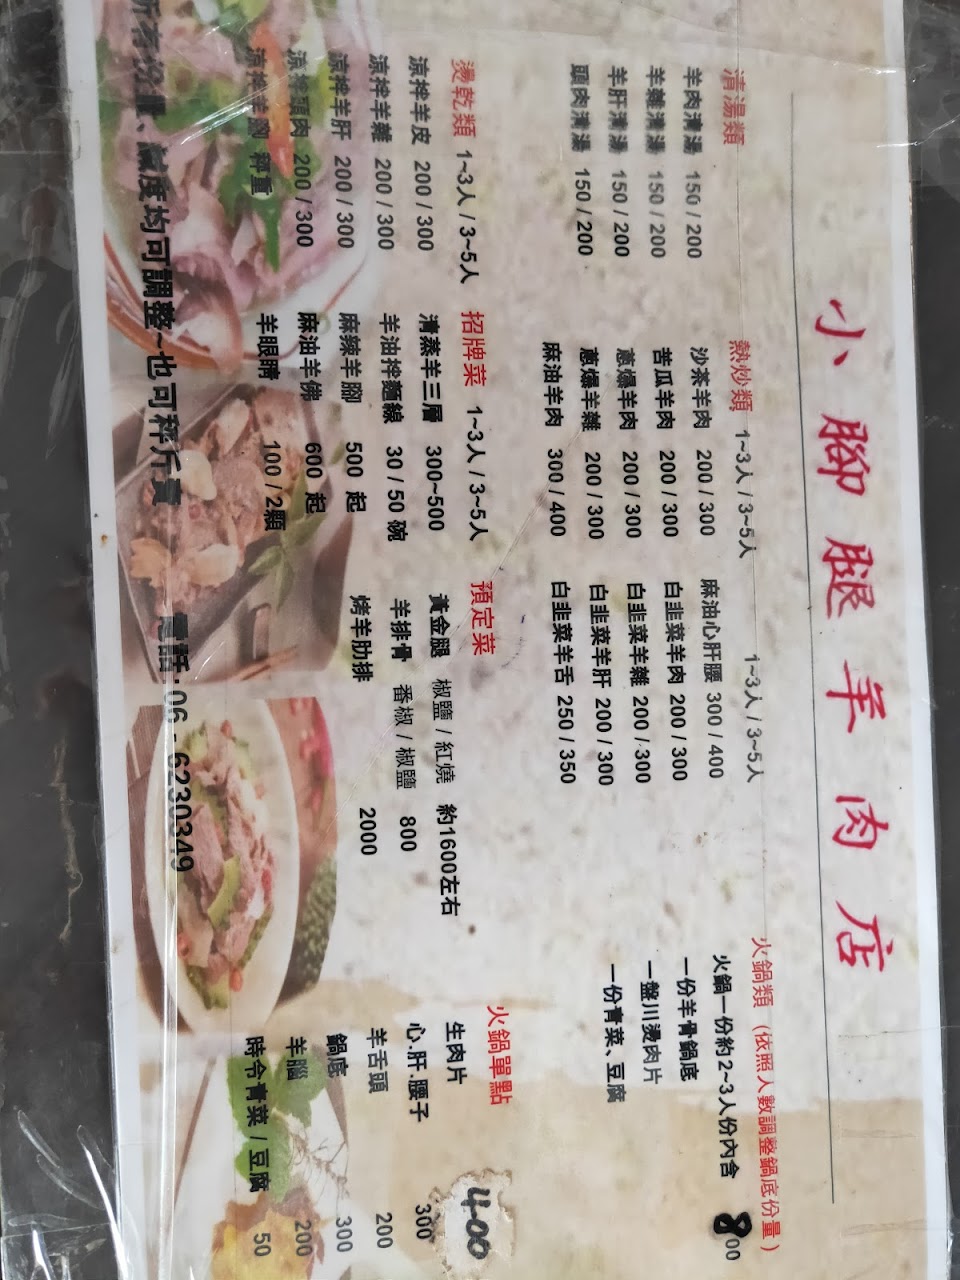 小腳腿羊肉店
清湯類
羊肉清湯 150 / 200
羊雜清湯 150 / 200
羊肝清湯 150 / 200
頭肉清湯 150 / 200
熱炒類 1~3人 / 3~5人
沙茶羊肉 200 / 300
苦瓜羊肉 200 / 300
蔥爆羊肉 200 / 300
蔥爆羊雜 200 / 300
麻油羊肉 300 / 400
1~3人 / 3~5人
麻油心肝腰 300 / 400
白韭菜羊肉 200 / 300
白韭菜羊雜 200 / 300
白韭菜羊肝 200 / 300
白韭菜羊舌 250 / 350
火鍋類 (依照人數調整鍋底份量)
火鍋一份約2~3人份內含 800
一份羊骨鍋底
一盤川燙肉片
一份青菜、豆腐
燙乾類 1~3人 / 3~5人
涼拌羊皮 200 / 300
涼拌羊雜 200 / 300
涼拌羊肝 200 / 300
涼拌頭肉 200 / 300
涼拌羊腳 秤重
招牌菜 1~3人 / 3~5人
清蒸羊三層 300~500
羊油拌麵線 30 / 50 碗
麻辣羊腳 500 起
麻油羊佛 600 起
羊眼睛 100 / 2顆
預定菜
黃金腿 椒鹽 / 紅燒 約1600左右
羊排骨 番椒 / 椒鹽 800
烤羊肋排 2000
火鍋單點
生肉片 400
心.肝.腰子 300
羊舌頭 200
鍋底 300
羊腦 200
時令青菜 / 豆腐 50
所有份量、鹹度均可調整~也可秤斤賣 電話:06 - 6230349